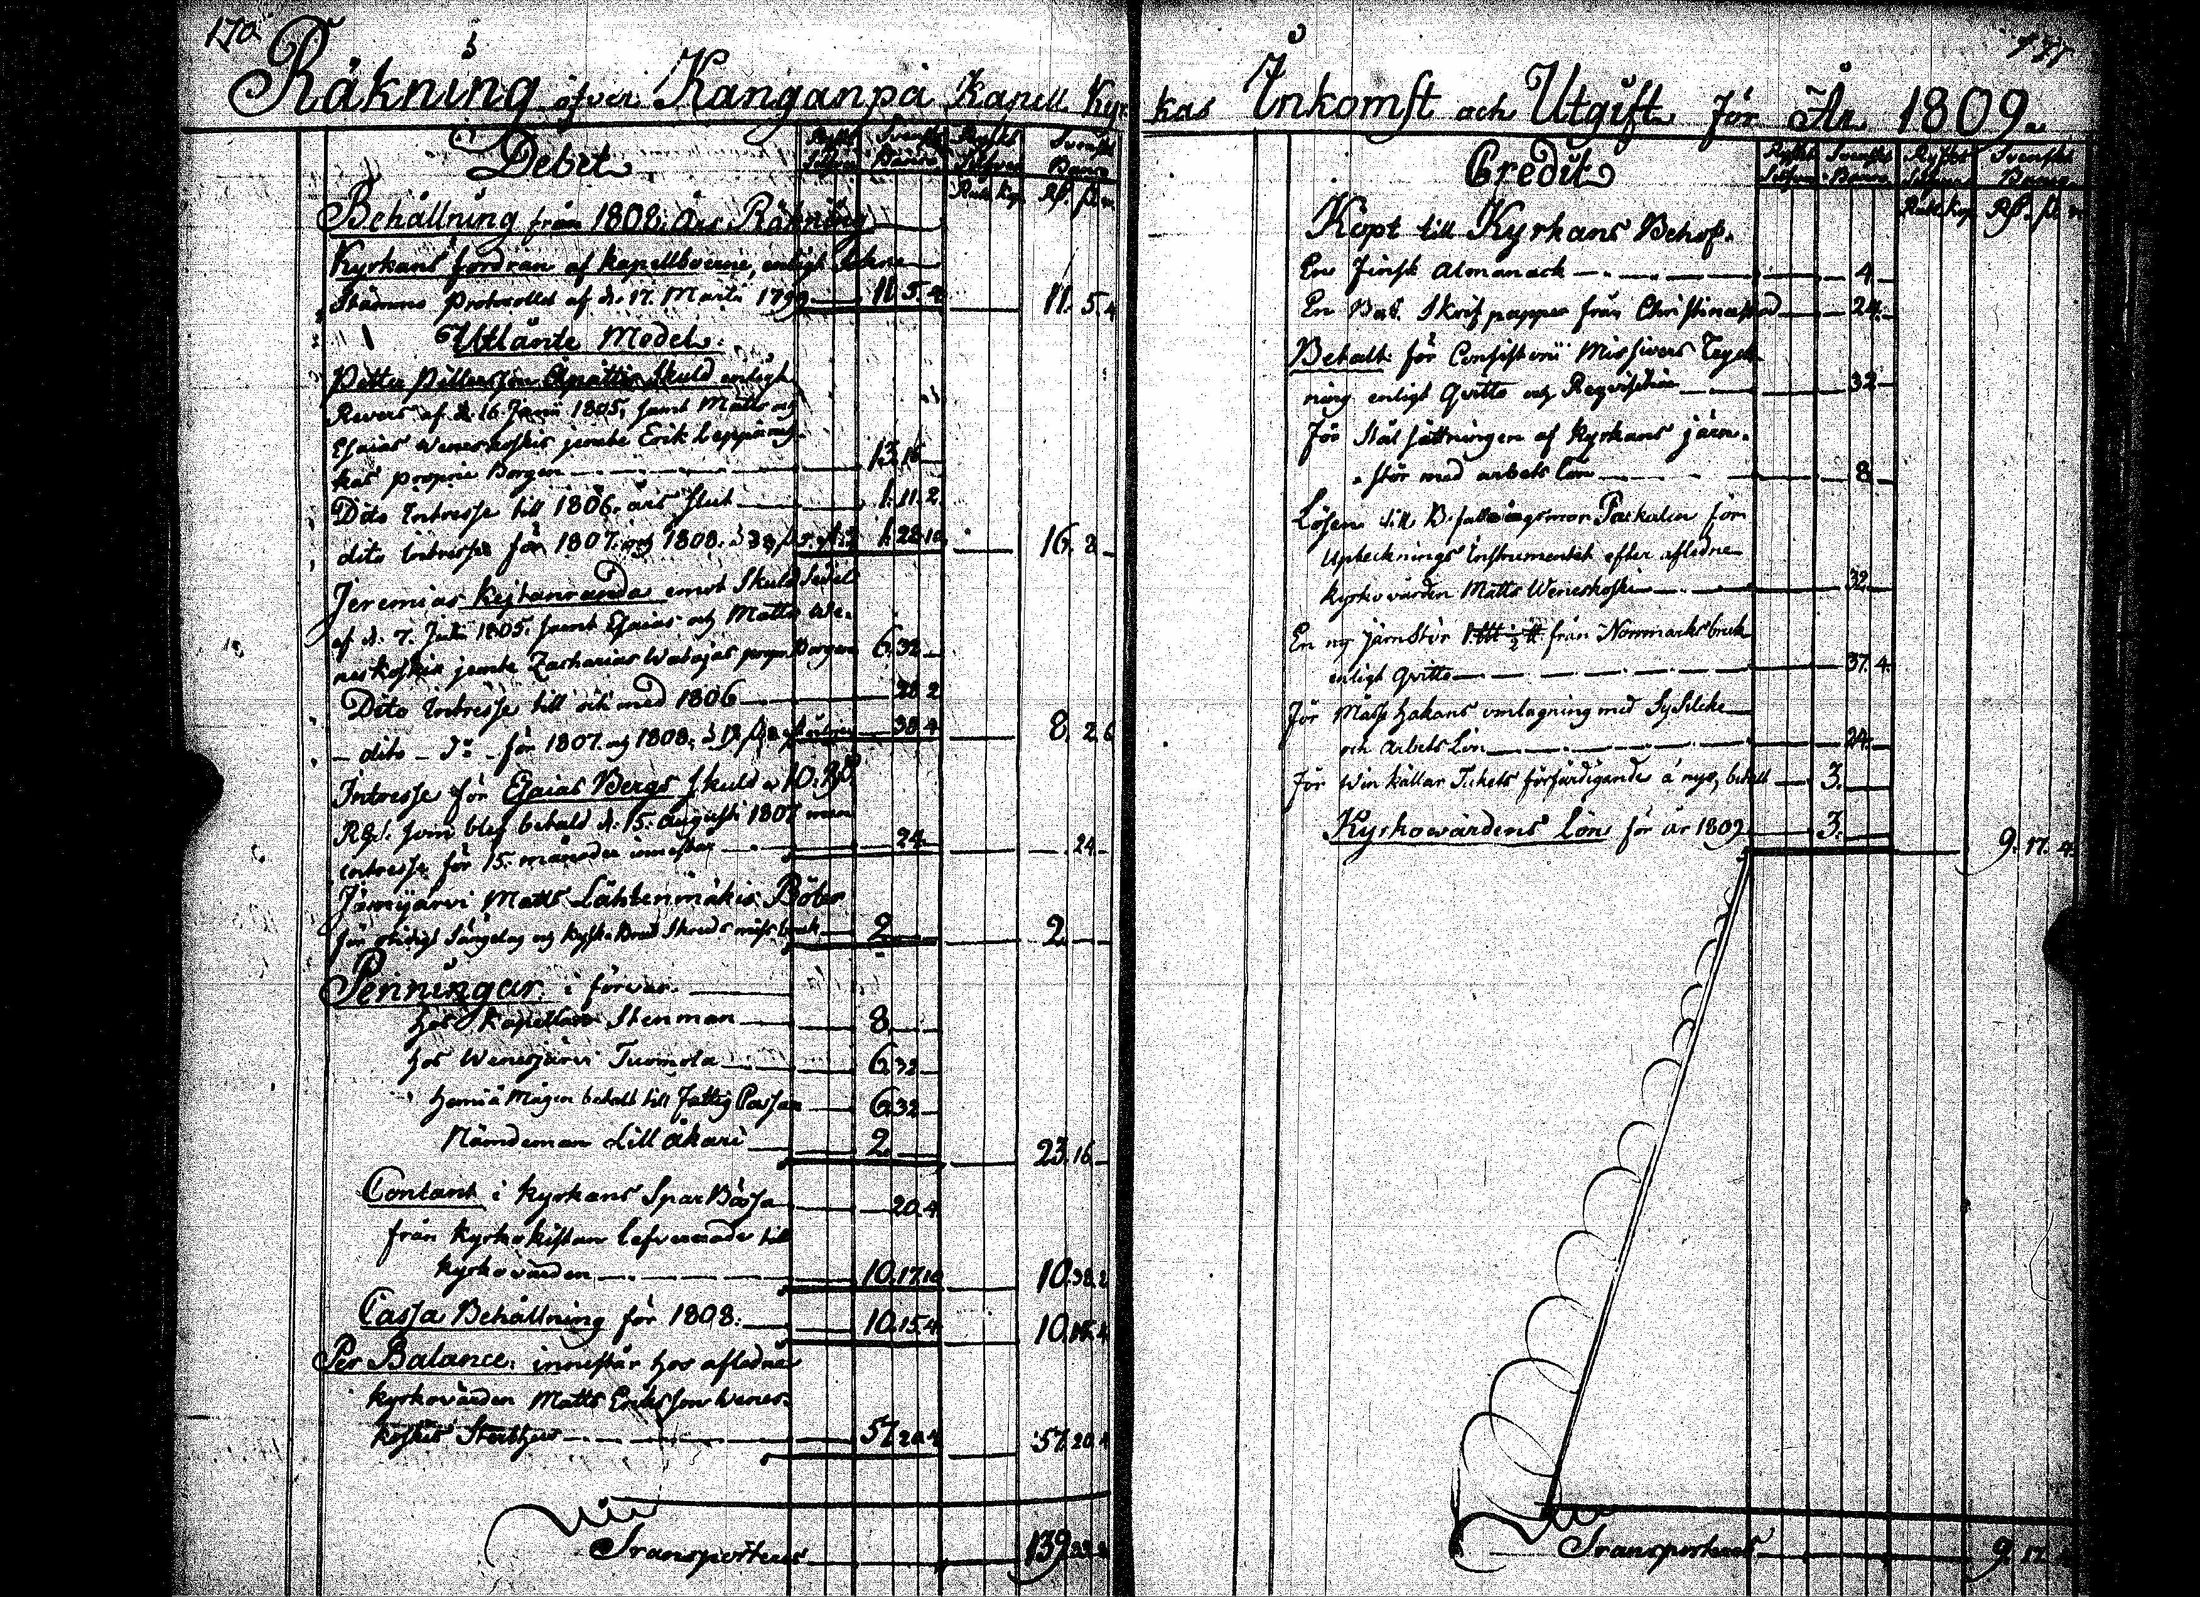 170
Räkning öfver Kanganpä Kapell Kyr
Debet
Ryskt Silfver Svenskt Banco Ryskt Silfver Svenskt Banco
Rub. Kop. R. ß. r.
Behållning från 1808. års Räkning
Kyrkans fordran af kapellboerne, enligt Sokne
Stämmo Protocollet af d. 17. Martii 1799 11. 5. 4 11. 5. 4
Utlånte Medel.
Petter Pettersson skuld enligt
Revers af d. 16 Junii 1805. samt Matts och
Esaias Weneskoskis jemte Erik Leppäns
kas proprie Borgen 13. 16
Dito Intresse till 1806. års slut 1. 11. 2.
dito intresse för 1807. och 1808. 1. 28. 10 16. 8
Jeremias Kejtanranda emot Skuld Sedel
af d. 7. Julii 1805. samt Esaias och Matts We
neskoskis jemte Zacharias Watajas Borgen 6. 32
Dito Intresse till och med 1806 28. 2
dito do för 1807. og 1808. 38. 4 8. 2. 6
Intresse för Esaias Bergs skuld 10. R
Rgs. som blef betald d. 15. Augusti 1807 men
intresse för 15. månader innestår 24. 24
Jämijärvi Matts Lähtenmäkis Böter
för otidigt Sängelag og missbruk 2 2
Penningar i förvar.
hos Kapellan Stenman 8
hos Wenesjärvi Tuomola 6. 32
Hemiä Mågen betalt till Fattig Cassan 6. 32
Nämdeman Lill åkari 2 23. 16
Contant i Kyrkans Spar Bössa 20. 4
från kyrkokistan lefvererade till
kyrkovärden 10. 17. 10 10. 38. 2
Cassa Behållning för 1808. 10. 15. 4 10. 15. 4
Per Balance. innestår hos afledne
kyrkovärden Matts Eriksson Wenes
koskis Sterbhus 57. 20. 4 57. 20. 4
Transporteras 139
171
kas Inkomst och Utgift för År 1809.
Credit
Ryskt Silfver Svenskt Banco Ryskt Silfver Svenskt Banco
Rub. Kop. R. ß. r
Köpt till Kyrkans Behof.
En Finsk Almanack 4
En Bok Skrifpapper från Christinæstad 24.
Betalt för Consistorii Missivers Tryck
ning enligt Qvitto och Reqvisition 32
För Stål sättningen af Kyrkans järn
stör med arbets lön 8
Lösen till Befallningsman Packalen för
Uptecknings Instrumentet efter afledne
kyrkovärden Matts Weneskoski 32
En ny järn Stör från Norrmarks bruk
enligt Qvitto 37. 4
För Mässhakans omlagning med Sy Silcke
och Arbets Lön 24
För Win källar Takets förfärdigande å nyo, betalt 3.
Kyrkowärdens Lön för år 1809 3. 9. 17. 4
Transporteras 9. 17. 4